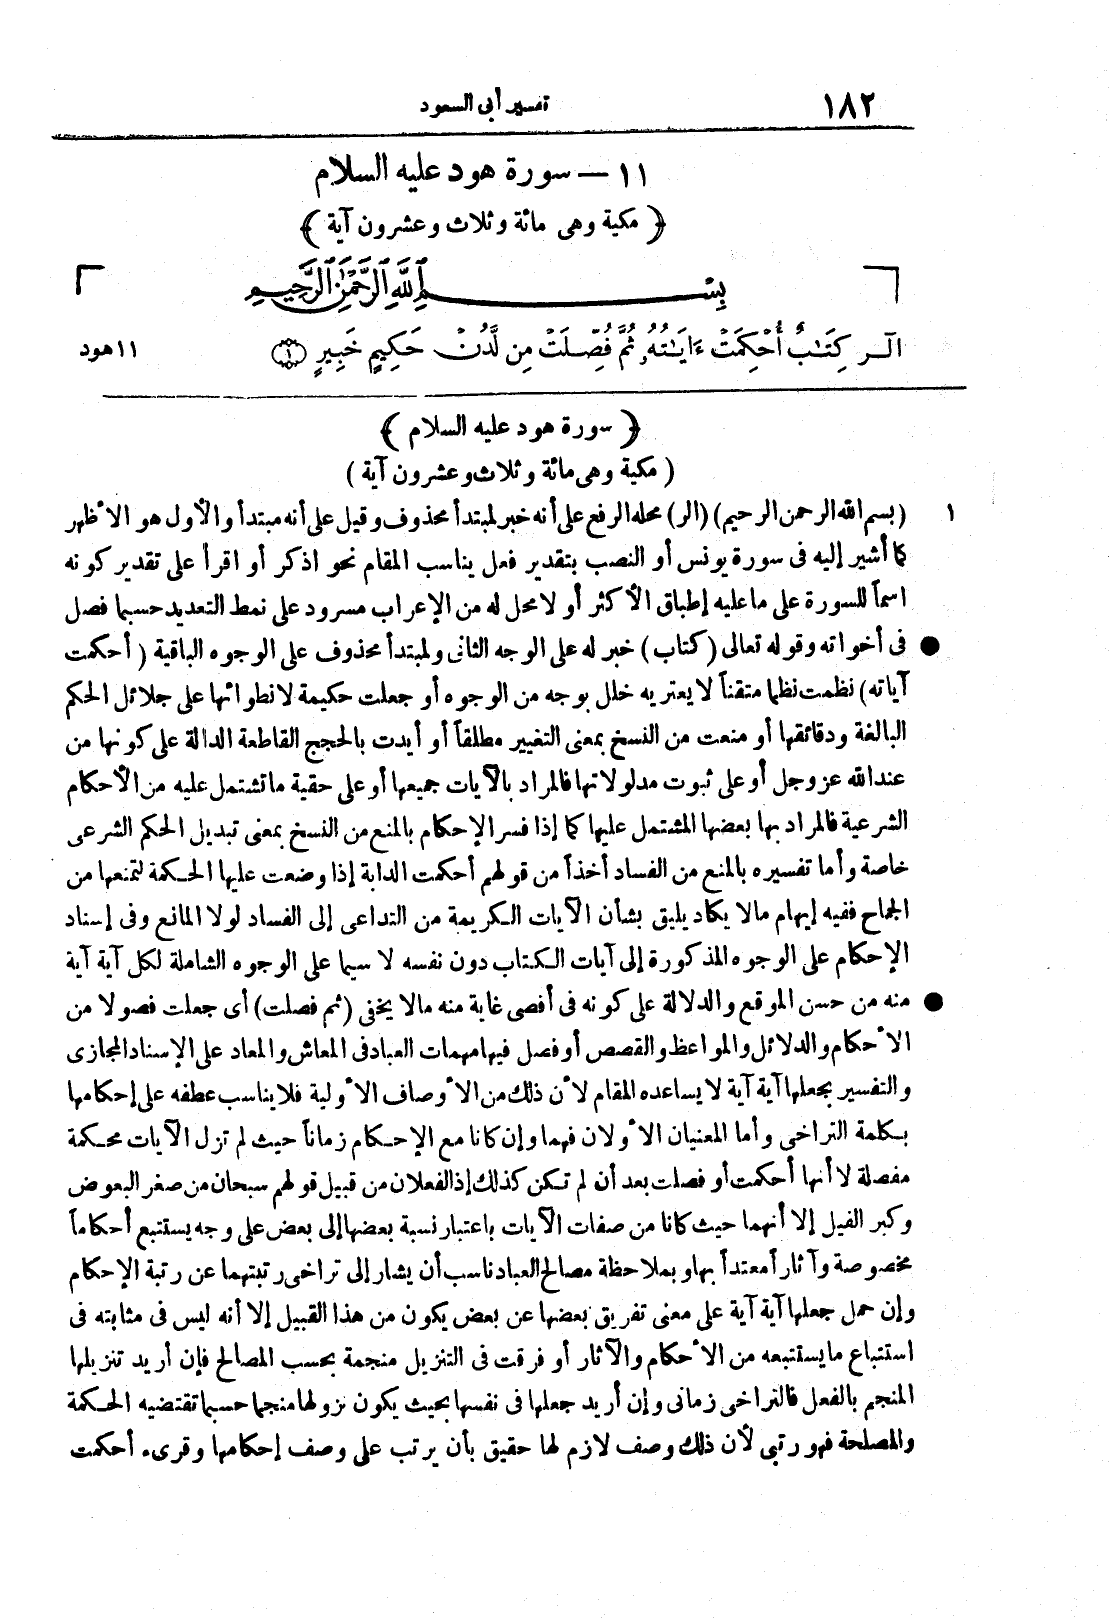 ١٨٢ تفسير أبى السعود
١١ — سورة هود عليه السلام
﴿ مكية وهى مائة وثلاث وعشرون آية ﴾
بِسْمِ ٱللَّهِ ٱلرَّحْمَٰنِ ٱلرَّحِيمِ
الٓر كِتَٰبٌ أُحْكِمَتْ ءَايَٰتُهُۥ ثُمَّ فُصِّلَتْ مِن لَّدُنْ حَكِيمٍ خَبِيرٍ ١ ١١ هود
﴿ سورة هود عليه السلام ﴾
( مكية وهى مائة وثلاث وعشرون آية )
١ (بسم الله الرحمن الرحيم) (الر) محله الرفع على أنه خبر لمبتدأ محذوف وقيل على أنه مبتدأ والأول هو الأظهر
كما أشير إليه فى سورة يونس أو النصب بتقدير فعل يناسب المقام نحو اذكر أو اقرأ على تقدير كونه
اسماً للسورة على ما عليه إطباق الأكثر أو لا محل له من الإعراب مسرود على نمط التعديد حسبما فصل
● فى أخواته وقوله تعالى (كتاب) خبر له على الوجه الثانى ولمبتدأ محذوف على الوجوه الباقية (أحكمت
آياته) نظمت نظما متقناً لا يعتريه خلل بوجه من الوجوه أو جعلت حكيمة لانطوائها على جلائل الحكم
البالغة ودقائقها أو منعت من النسخ بمعنى التغيير مطلقاً أو أيدت بالحجج القاطعة الدالة على كونها من
عند الله عز وجل أو على ثبوت مدلولاتها فالمراد بالآيات جميعها أو على حقية ما تشتمل عليه من الأحكام
الشرعية فالمراد بها بعضها المشتمل عليها كما إذا فسر الإحكام بالمنع من النسخ بمعنى تبديل الحكم الشرعى
خاصة وأما تفسيره بالمنع من الفساد أخذاً من قولهم أحكمت الدابة إذا وضعت عليها الحكمة لتمنعها من
الجماح ففيه إيهام مالا يكاد يليق بشأن الآيات الكريمة من التداعى إلى الفساد لولا المانع وفى إسناد
الإحكام على الوجوه المذكورة إلى آيات الكتاب دون نفسه لا سيما على الوجوه الشاملة لكل آية آية
● منه من حسن الموقع والدلالة على كونه فى أقصى غاية منه مالا يخفى (ثم فصلت) أى جعلت فصولا من
الأحكام والدلائل والمواعظ والقصص أو فصل فيها مهمات العباد فى المعاش والمعاد على الإسناد المجازى
والتفسير بجعلها آية آية لا يساعده المقام لأن ذلك من الأوصاف الأولية فلا يناسب عطفه على إحكامها
بكلمة التراخى وأما المعنيان الأولان فهما وإن كانا مع الإحكام زماناً حيث لم تزل الآيات محكمة
مفصلة لا أنها أحكمت أو فصلت بعد أن لم تكن كذلك إذ الفعلان من قبيل قولهم سبحان من صغر البعوض
وكبر الفيل إلا أنهما حيث كانا من صفات الآيات باعتبار نسبة بعضها إلى بعض على وجه يستتبع أحكاماً
مخصوصة وآثاراً معتداً بها وبملاحظة مصالح العباد ناسب أن يشار إلى تراخى رتبتهما عن رتبة الإحكام
وإن حمل جعلها آية آية على معنى تفريق بعضها عن بعض يكون من هذا القبيل إلا أنه ليس فى مثابته فى
استتباع ما يستتبعه من الأحكام والآثار أو فرقت فى التنزيل منجمة بحسب المصالح فإن أريد تنزيلها
المنجم بالفعل فالتراخى زمانى وإن أريد جعلها فى نفسها بحيث يكون نزولها منجما حسبما تقتضيه الحكمة
والمصلحة فهو رتبى لأن ذلك وصف لازم لها حقيق بأن يرتب على وصف إحكامها وقرىء أحكمت